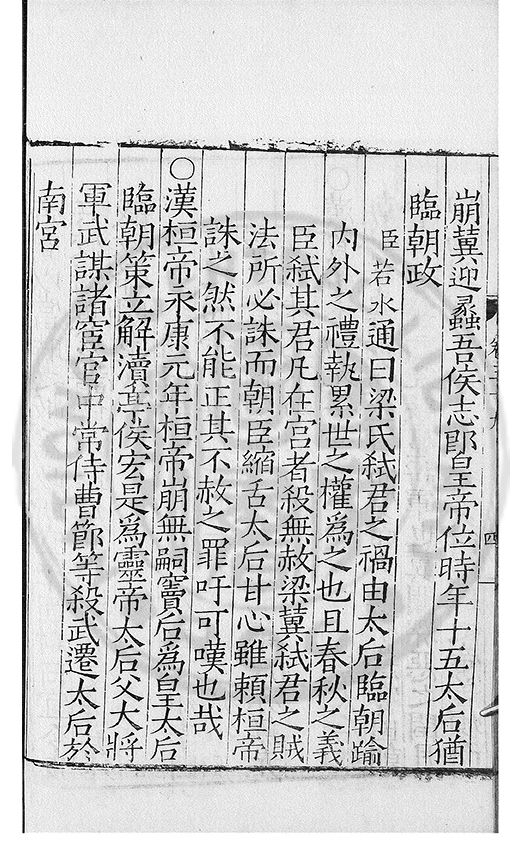 崩蓂迎蠡吾侯志即皇帝位時年十五太后猶
臨朝政
臣若水通曰梁氏弑君之禍由太后臨朝踰
内外之禮執累世之權為之也且春秋之義
臣弑其君凡在宫者殺無赦梁蓂弑君之賊
法所必誅而朝臣縮舌太后甘心雖頼桓帝
誅之然不能正其不赦之罪吁可嘆也哉
○漢桓帝永康元年桓帝崩無嗣竇后為皇太后
臨朝策立解瀆亭侯宏是為靈帝太后父大將
軍武謀諸宦官中常侍曹節等殺武遷太后於
南宫
四